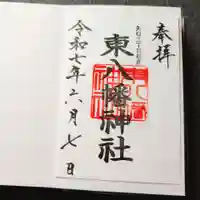 奉拝
東八幡神社
令和七年六月七日